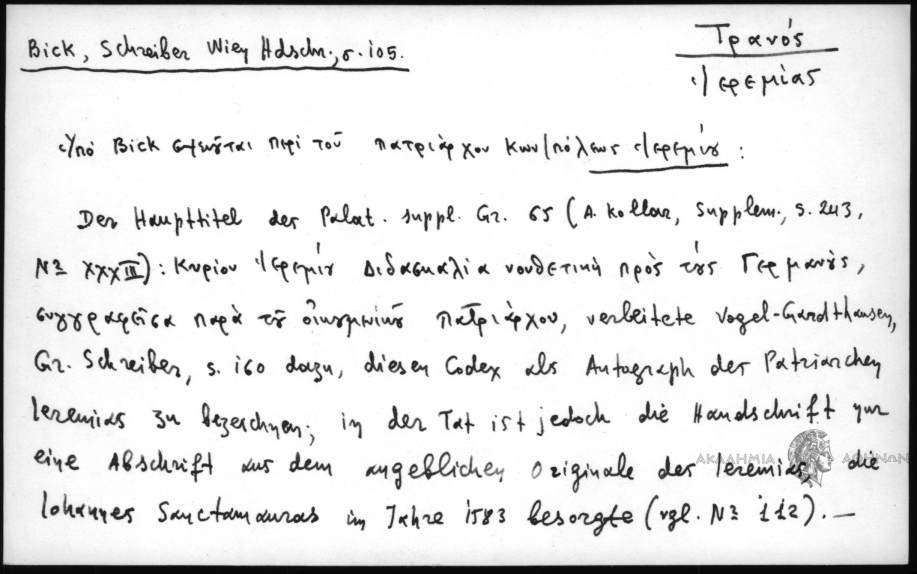 Bick, Schreiber Wien Hdschr., σ. 105.
Τρανός
Ἱερεμίας
Ὑπό Bick σημειοῦται περί τοῦ πατριάρχου Κων/πόλεως Ἱερεμίου :
Der Haupttitel des Palat. suppl. Gr. 65 (A. Kollar, Supplem., S. 243,
Nº XXXIII) : Κυρίου Ἱερεμίου Διδασκαλία νουθετική πρὸς τοὺς Γερμανούς,
συγγραφεῖσα παρὰ τοῦ οἰκουμενικοῦ πατριάρχου, verleitete Vogel-Gardthausen,
Gr. Schreiber, S. 160 dazu, diesen Codex als Autograph des Patriarchen
Ieremias zu bezeichnen; in der Tat ist jedoch die Handschrift nur
eine Abschrift aus dem angeblichen Originale des Ieremias, die
Iohannes Sanctamauras im Jahre 1583 besorgte (vgl. Nº 112). —
ΑΚΑΔΗΜΙΑ ΑΘΗΝΩΝ